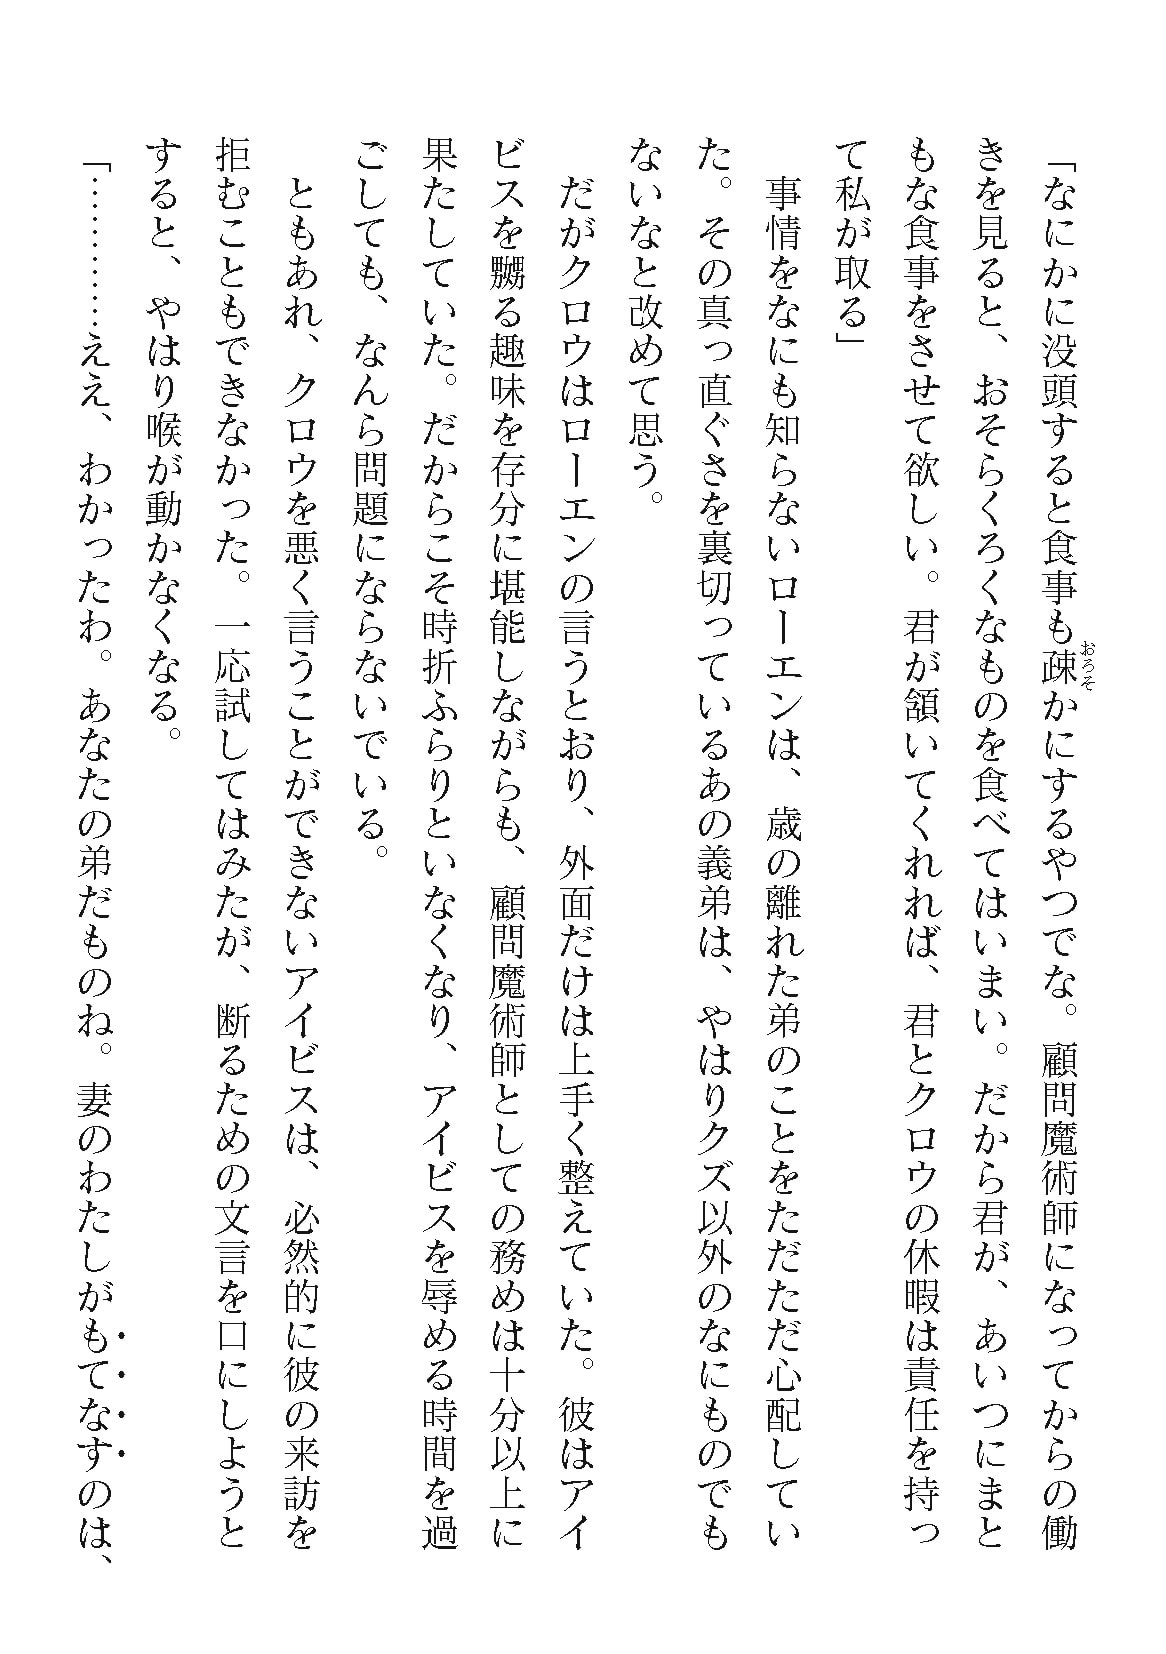 「なにかに没頭すると食事も疎かにするやつでな。顧問魔術師になってからの働
きを見ると、おそらくろくなものを食べてはいまい。だから君が、あいつにまと
もな食事をさせて欲しい。君が頷いてくれれば、君とクロウの休暇は責任を持っ
て私が取る」
　事情をなにも知らないローエンは、歳の離れた弟のことをただただ心配してい
た。その真っ直ぐさを裏切っているあの義弟は、やはりクズ以外のなにものでも
ないなと改めて思う。
　だがクロウはローエンの言うとおり、外面だけは上手く整えていた。彼はアイ
ビスを嬲る趣味を存分に堪能しながらも、顧問魔術師としての務めは十分以上に
果たしていた。だからこそ時折ふらりといなくなり、アイビスを辱める時間を過
ごしても、なんら問題にならないでいる。
　ともあれ、クロウを悪く言うことができないアイビスは、必然的に彼の来訪を
拒むこともできなかった。一応試してはみたが、断るための文言を口にしようと
すると、やはり喉が動かなくなる。
「…………ええ、わかったわ。あなたの弟だものね。妻のわたしがもてなすのは、
おろそ